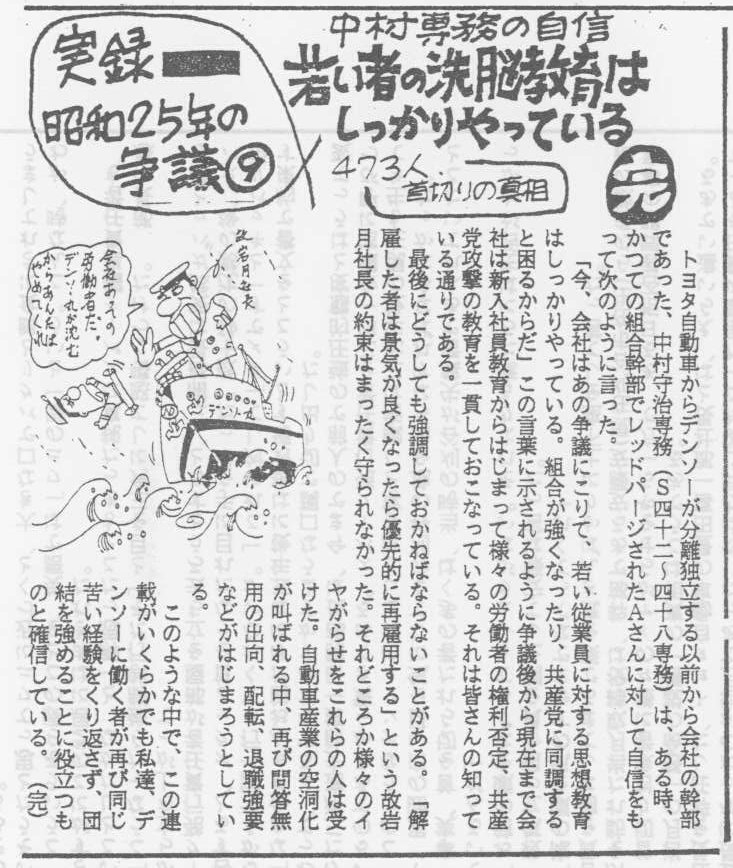 実録━
昭和25年の
争議⑨
中村専務の自信
若い者の洗脳教育は
しっかりやっている
473人
首切りの真相
完
トヨタ自動車からデンソーが分離独立する以前から会社の幹部
であった、中村守治専務(S四十二～四十八専務)は、ある時、
かつての組合幹部でレッドパージされたAさんに対して自信をも
って次のように言った。
「今、会社はあの争議にこりて、若い従業員に対する思想教育
はしっかりやっている。組合が強くなったり、共産党に同調する
と困るからだ」この言葉に示されるように争議後から現在まで会
社は新入社員教育からはじまって様々の労働者の権利否定、共産
党攻撃の教育を一貫しておこなっている。それは皆さんの知って
いる通りである。
最後にどうしても強調しておかねばならないことがある。「解
雇した者は景気が良くなったら優先的に再雇用する」という故岩
月社長の約束はまったく守られなかった。それどころか様々のイ
ヤがらせをこれらの人は受
けた。自動車産業の空洞化
が叫ばれる中、再び問答無
用の出向、配転、退職強要
などがはじまろうとしてい
る。
このような中で、この連
載がいくらかでも私達、デ
ンソーに働く者が再び同じ
苦い経験をくり返さず、団
結を強めることに役立つも
のと確信している。(完)
故岩月社長
会社あっての
労働者だ。
デンソー丸が沈む
からあんたは
やめてくれ
デンソー丸